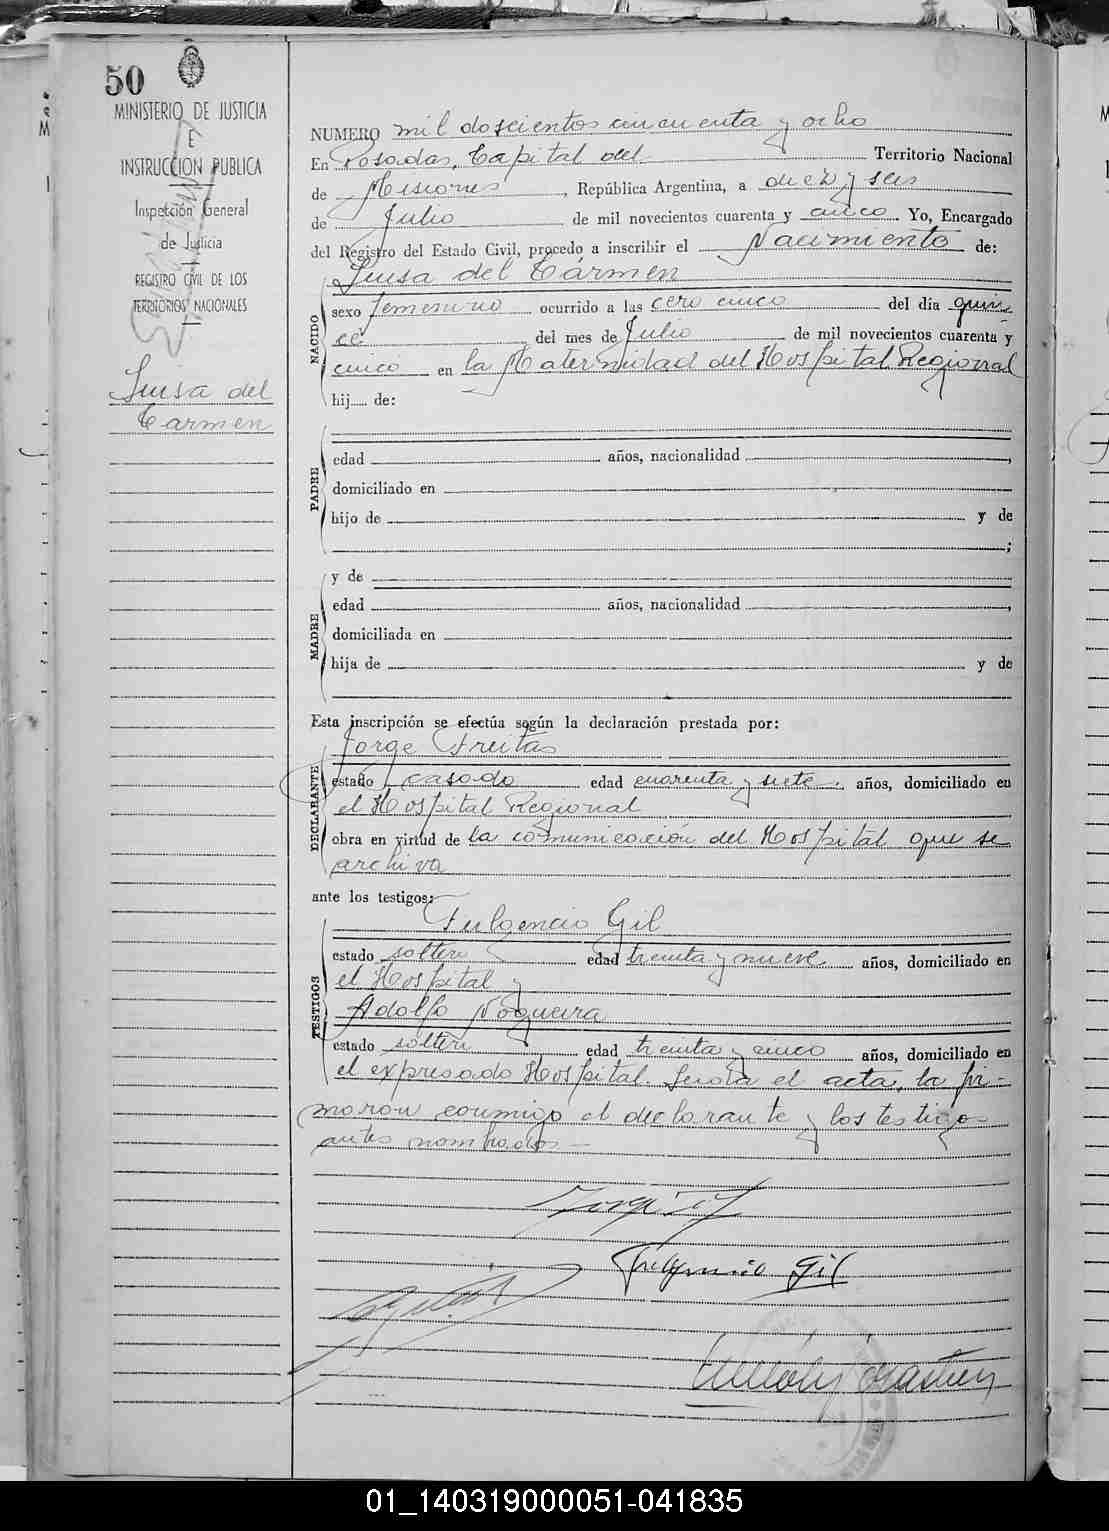 50
MINISTERIO DE JUSTICIA
E
INSTRUCCION PUBLICA
Inspección General
de Justicia
REGISTRO CIVIL DE LOS
TERRITORIOS NACIONALES
Luisa del
Carmen
NUMERO mil doscientos cincuenta y ocho
En Posadas, Capital del Territorio Nacional
de Misiones, República Argentina, a diez y seis
de Julio de mil novecientos cuarenta y cinco. Yo, Encargado
del Registro del Estado Civil, procedo a inscribir el Nacimiento de:
NACIDO
Luisa del Cármen
sexo femenino ocurrido a las cero cinco del día quin
ce del mes de Julio de mil novecientos cuarenta y
cinco en la Maternidad del Hospital Regional
hij..... de:
PADRE
edad años, nacionalidad ,
domiciliado en
hijo de y de
;
MADRE
y de
edad años, nacionalidad ,
domiciliada en
hija de y de
Esta inscripción se efectúa según la declaración prestada por:
DECLARANTE
Jorge Freitas
estado casado edad cuarenta y siete años, domiciliado en
el Hospital Regional
obra en virtud de la comunicación del Hospital que se
archiva
ante los testigos:
TESTIGOS
Fulgencio Gil
estado soltero edad treinta y nueve años, domiciliado en
el Hospital y
Adolfo Nogueira
estado soltero edad treinta y cinco años, domiciliado en
el expresado Hospital. Leida el acta, la fir-
maron conmigo el declarante y los testigos
antes nombrados -
Fulgencio Gil
01_140319000051-041835